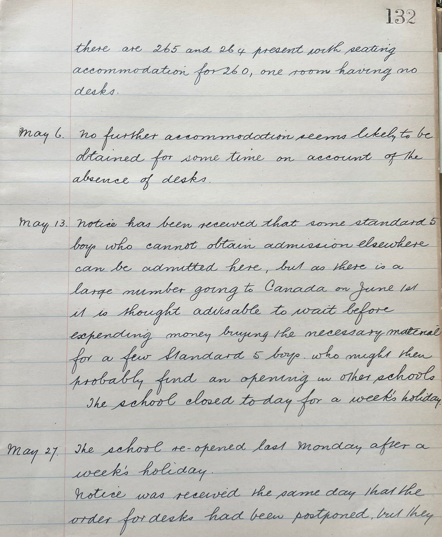 132
there are 265 and 264 present with seating
accommodation for 260, one room having no
desks.
May 6. No further accommodation seems likely to be
obtained for some time on account of the
absence of desks.
May 13. Notice has been received that some standard 5
boys who cannot obtain admission elsewhere
can be admitted here, but as there is a
large number going to Canada on June 1st
it is thought advisable to wait before
expending money buying the necessary material
for a few Standard 5 boys who might then
probably find an opening in other schools
The school closed today for a week's holiday
May 27. The school re-opened last Monday after a
week's holiday.
Notice was received the same day that the
order for desks had been postponed, but they